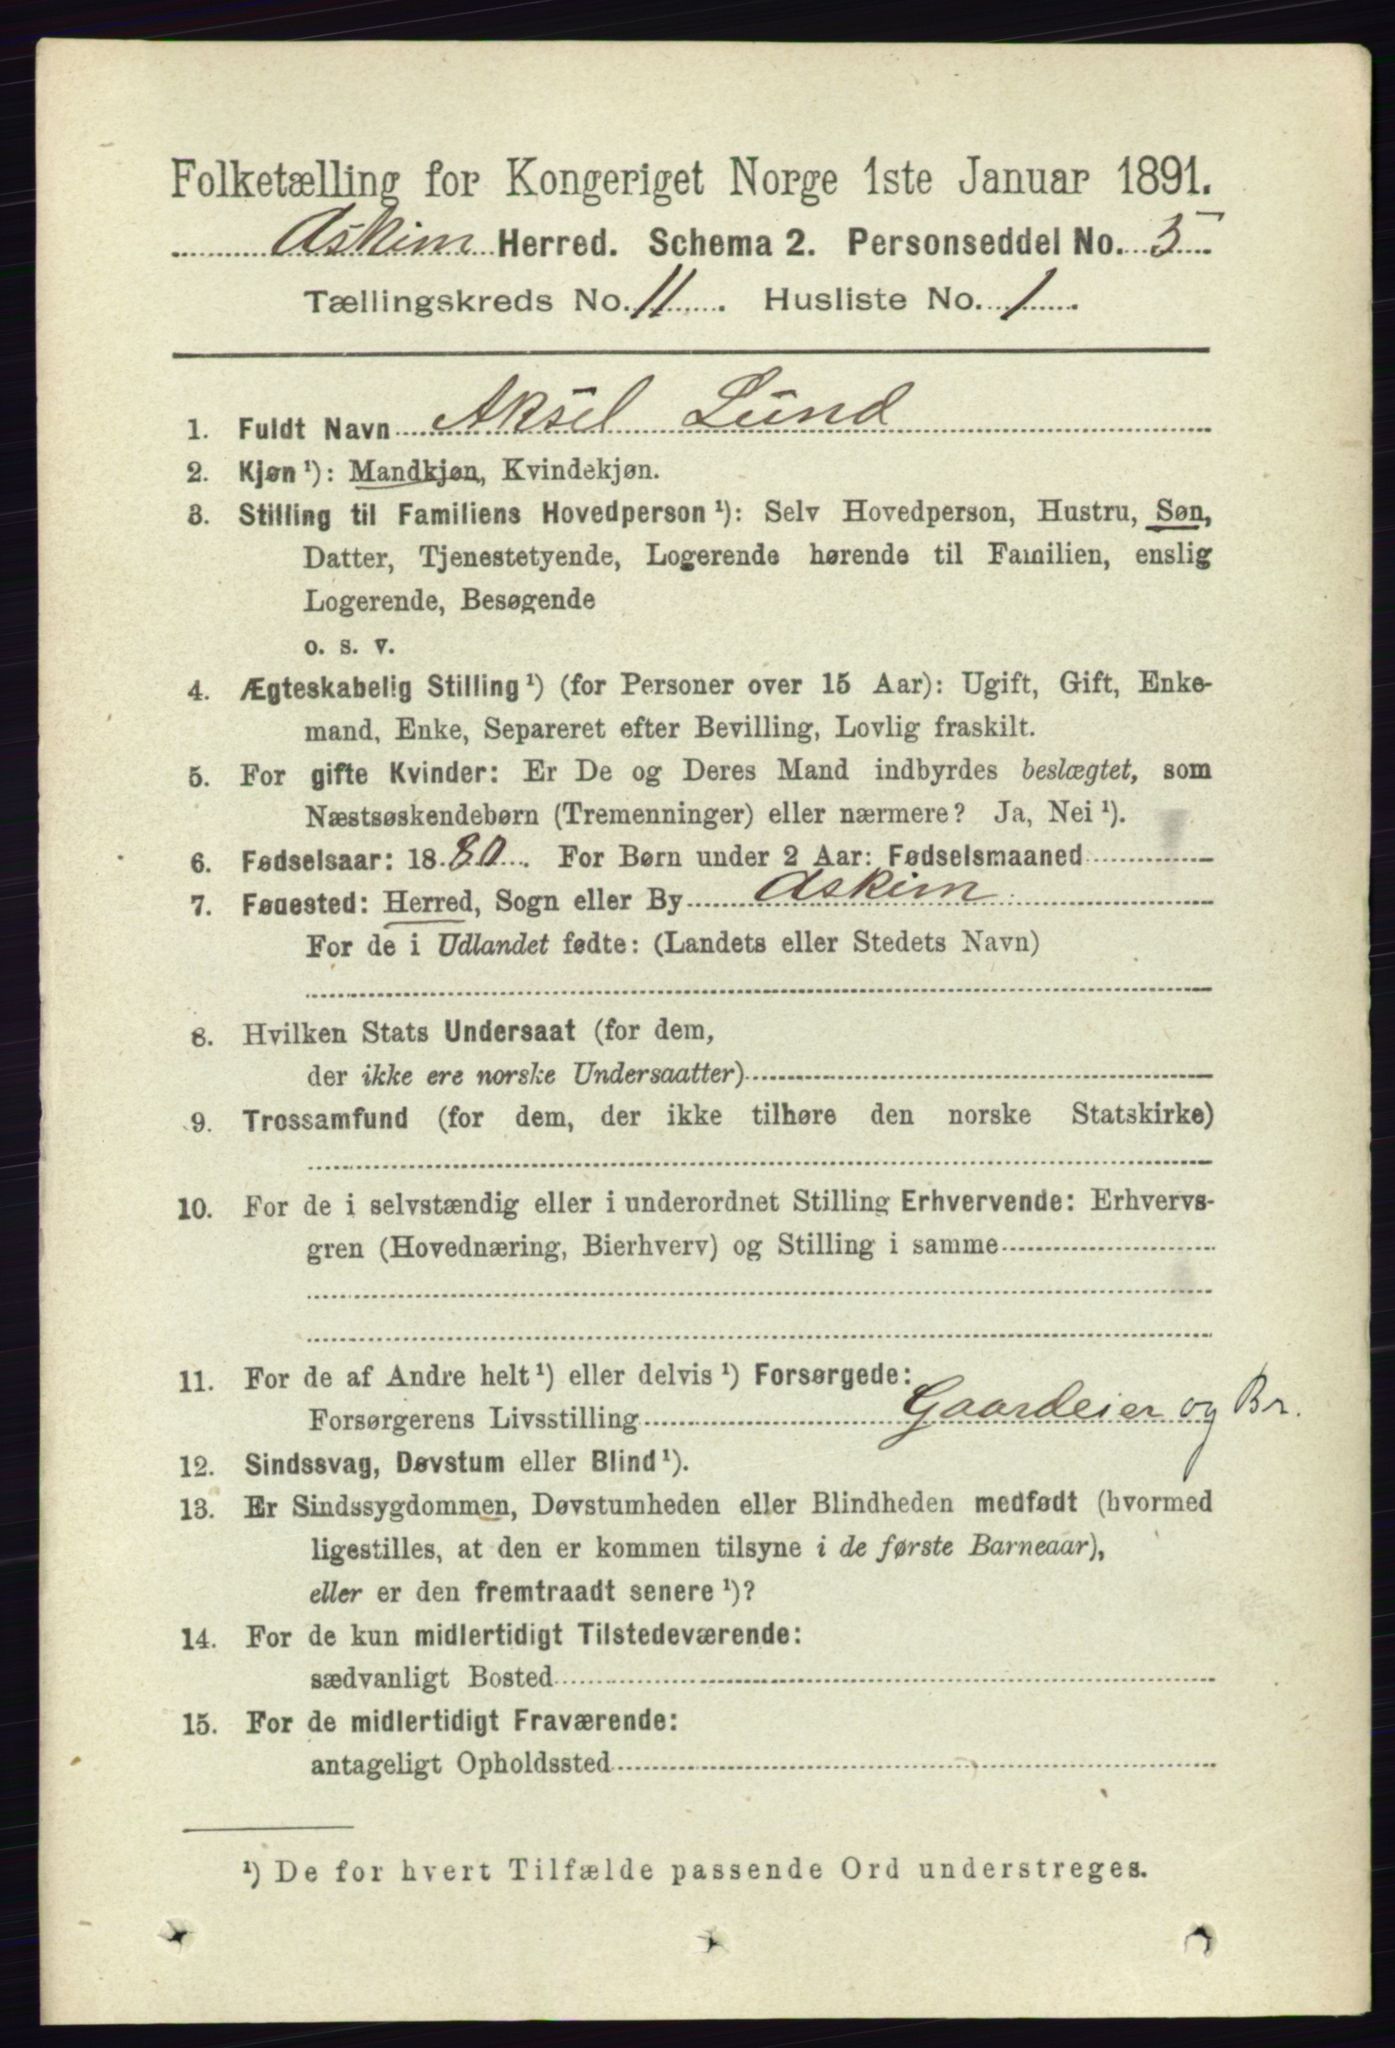 Folketælling for Kongeriget Norge 1ste Januar 1891.
Askim Herred. Schema 2. Personseddel No. 5
Tællingskreds No. 11. Husliste No. 1.
1. Fuldt Navn Aksel Lund
2. Kjøn ¹): Mandkjøn, Kvindekjøn.
3. Stilling til Familiens Hovedperson ¹): Selv Hovedperson, Hustru, Søn,
Datter, Tjenestetyende, Logerende hørende til Familien, enslig
Logerende, Besøgende
o. s. v.
4. Ægteskabelig Stilling ¹) (for Personer over 15 Aar): Ugift, Gift, Enke-
mand, Enke, Separeret efter Bevilling, Lovlig fraskilt.
5. For gifte Kvinder: Er De og Deres Mand indbyrdes beslægtet, som
Næstsøskendebørn (Tremenninger) eller nærmere? Ja, Nei ¹).
6. Fødselsaar: 1880. For Børn under 2 Aar: Fødselsmaaned
7. Fødested: Herred, Sogn eller By Askim
For de i Udlandet fødte: (Landets eller Stedets Navn)
8. Hvilken Stats Undersaat (for dem,
der ikke ere norske Undersaatter)
9. Trossamfund (for dem, der ikke tilhøre den norske Statskirke)
10. For de i selvstændig eller i underordnet Stilling Erhvervende: Erhvervs-
gren (Hovednæring, Bierhverv) og Stilling i samme
11. For de af Andre helt ¹) eller delvis ¹) Forsørgede:
Forsørgerens Livsstilling Gaardeier og Br.
12. Sindssvag, Døvstum eller Blind ¹).
13. Er Sindssygdommen, Døvstumheden eller Blindheden medfødt (hvormed
ligestilles, at den er kommen tilsyne i de første Barneaar),
eller er den fremtraadt senere ¹)?
14. For de kun midlertidigt Tilstedeværende:
sædvanligt Bosted
15. For de midlertidigt Fraværende:
antageligt Opholdssted
¹) De for hvert Tilfælde passende Ord understreges.